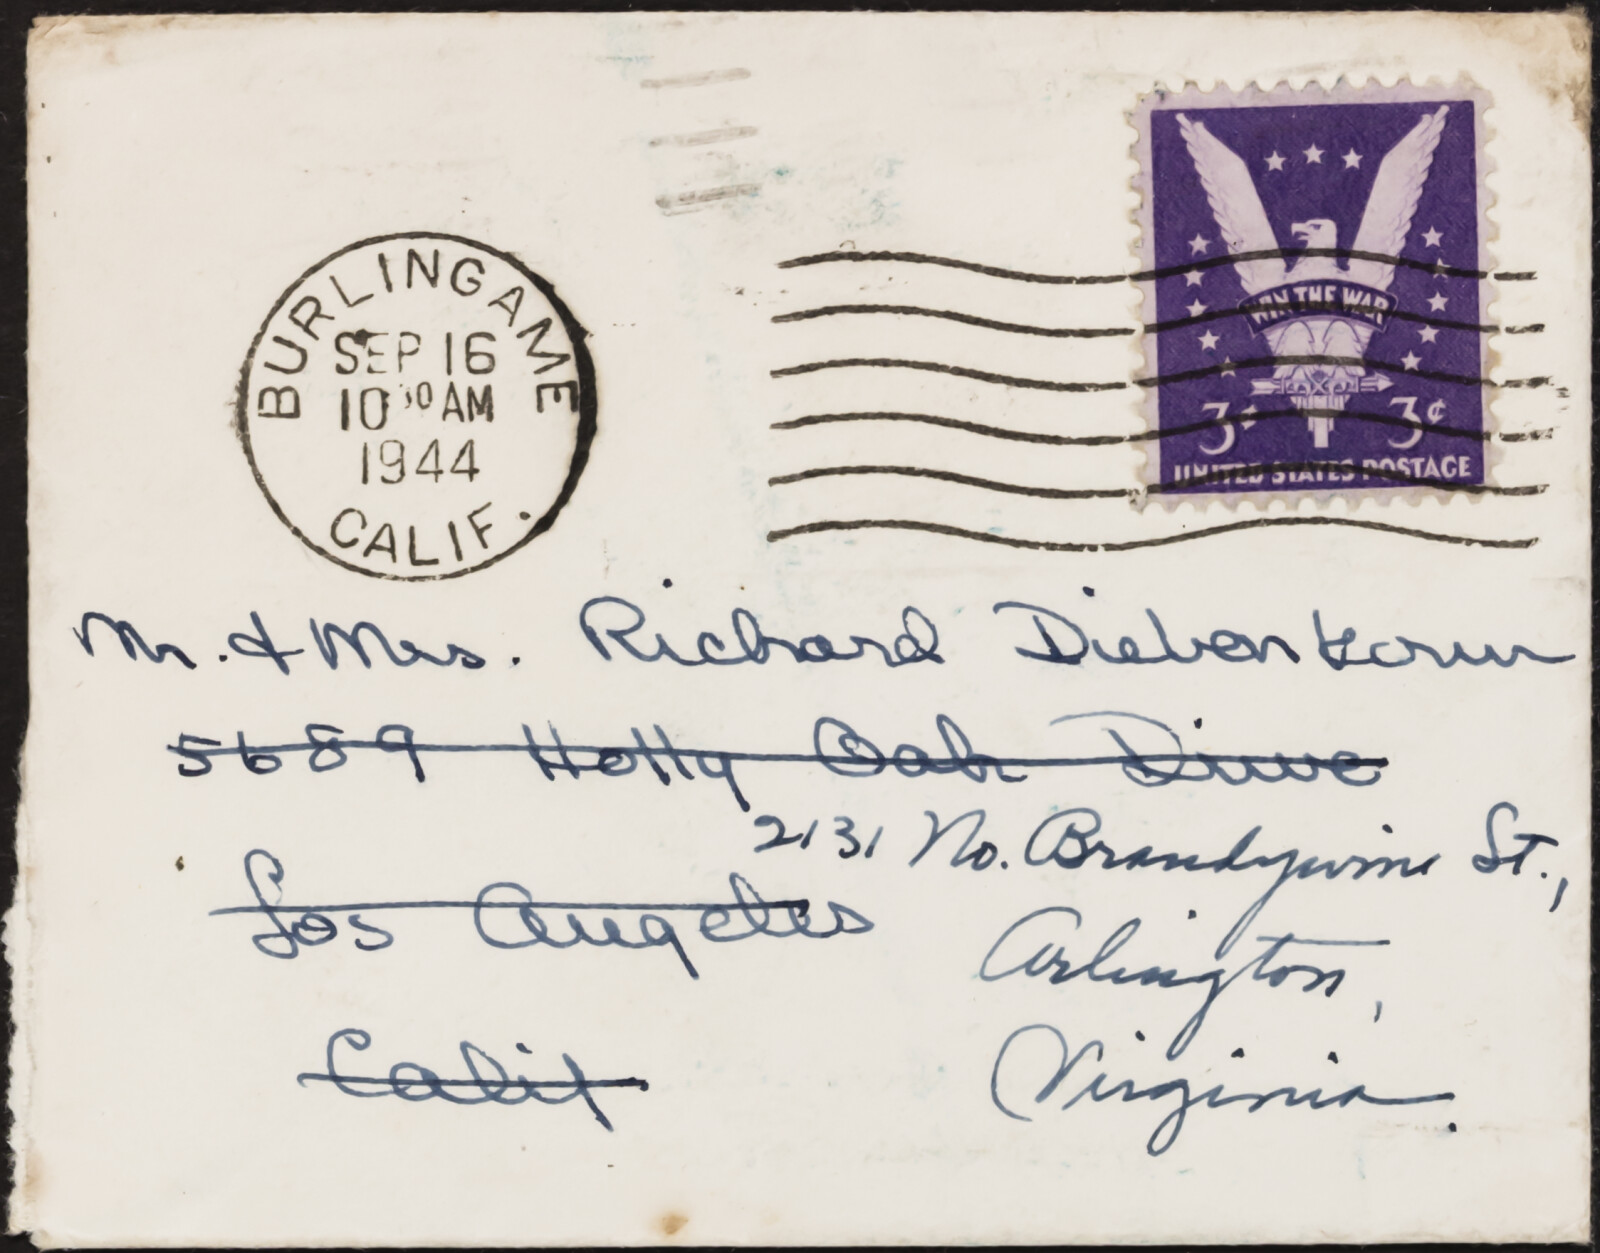 BURLINGAME
SEP 16
10 AM
1944
CALIF.
WIN THE WAR
3¢ 3¢
UNITED STATES POSTAGE
Mr. & Mrs. Richard Diebenkorn
5689 Holly Oak Drive
2131 No. Brandywine St.,
Los Angeles
Arlington,
Calif
Virginia.